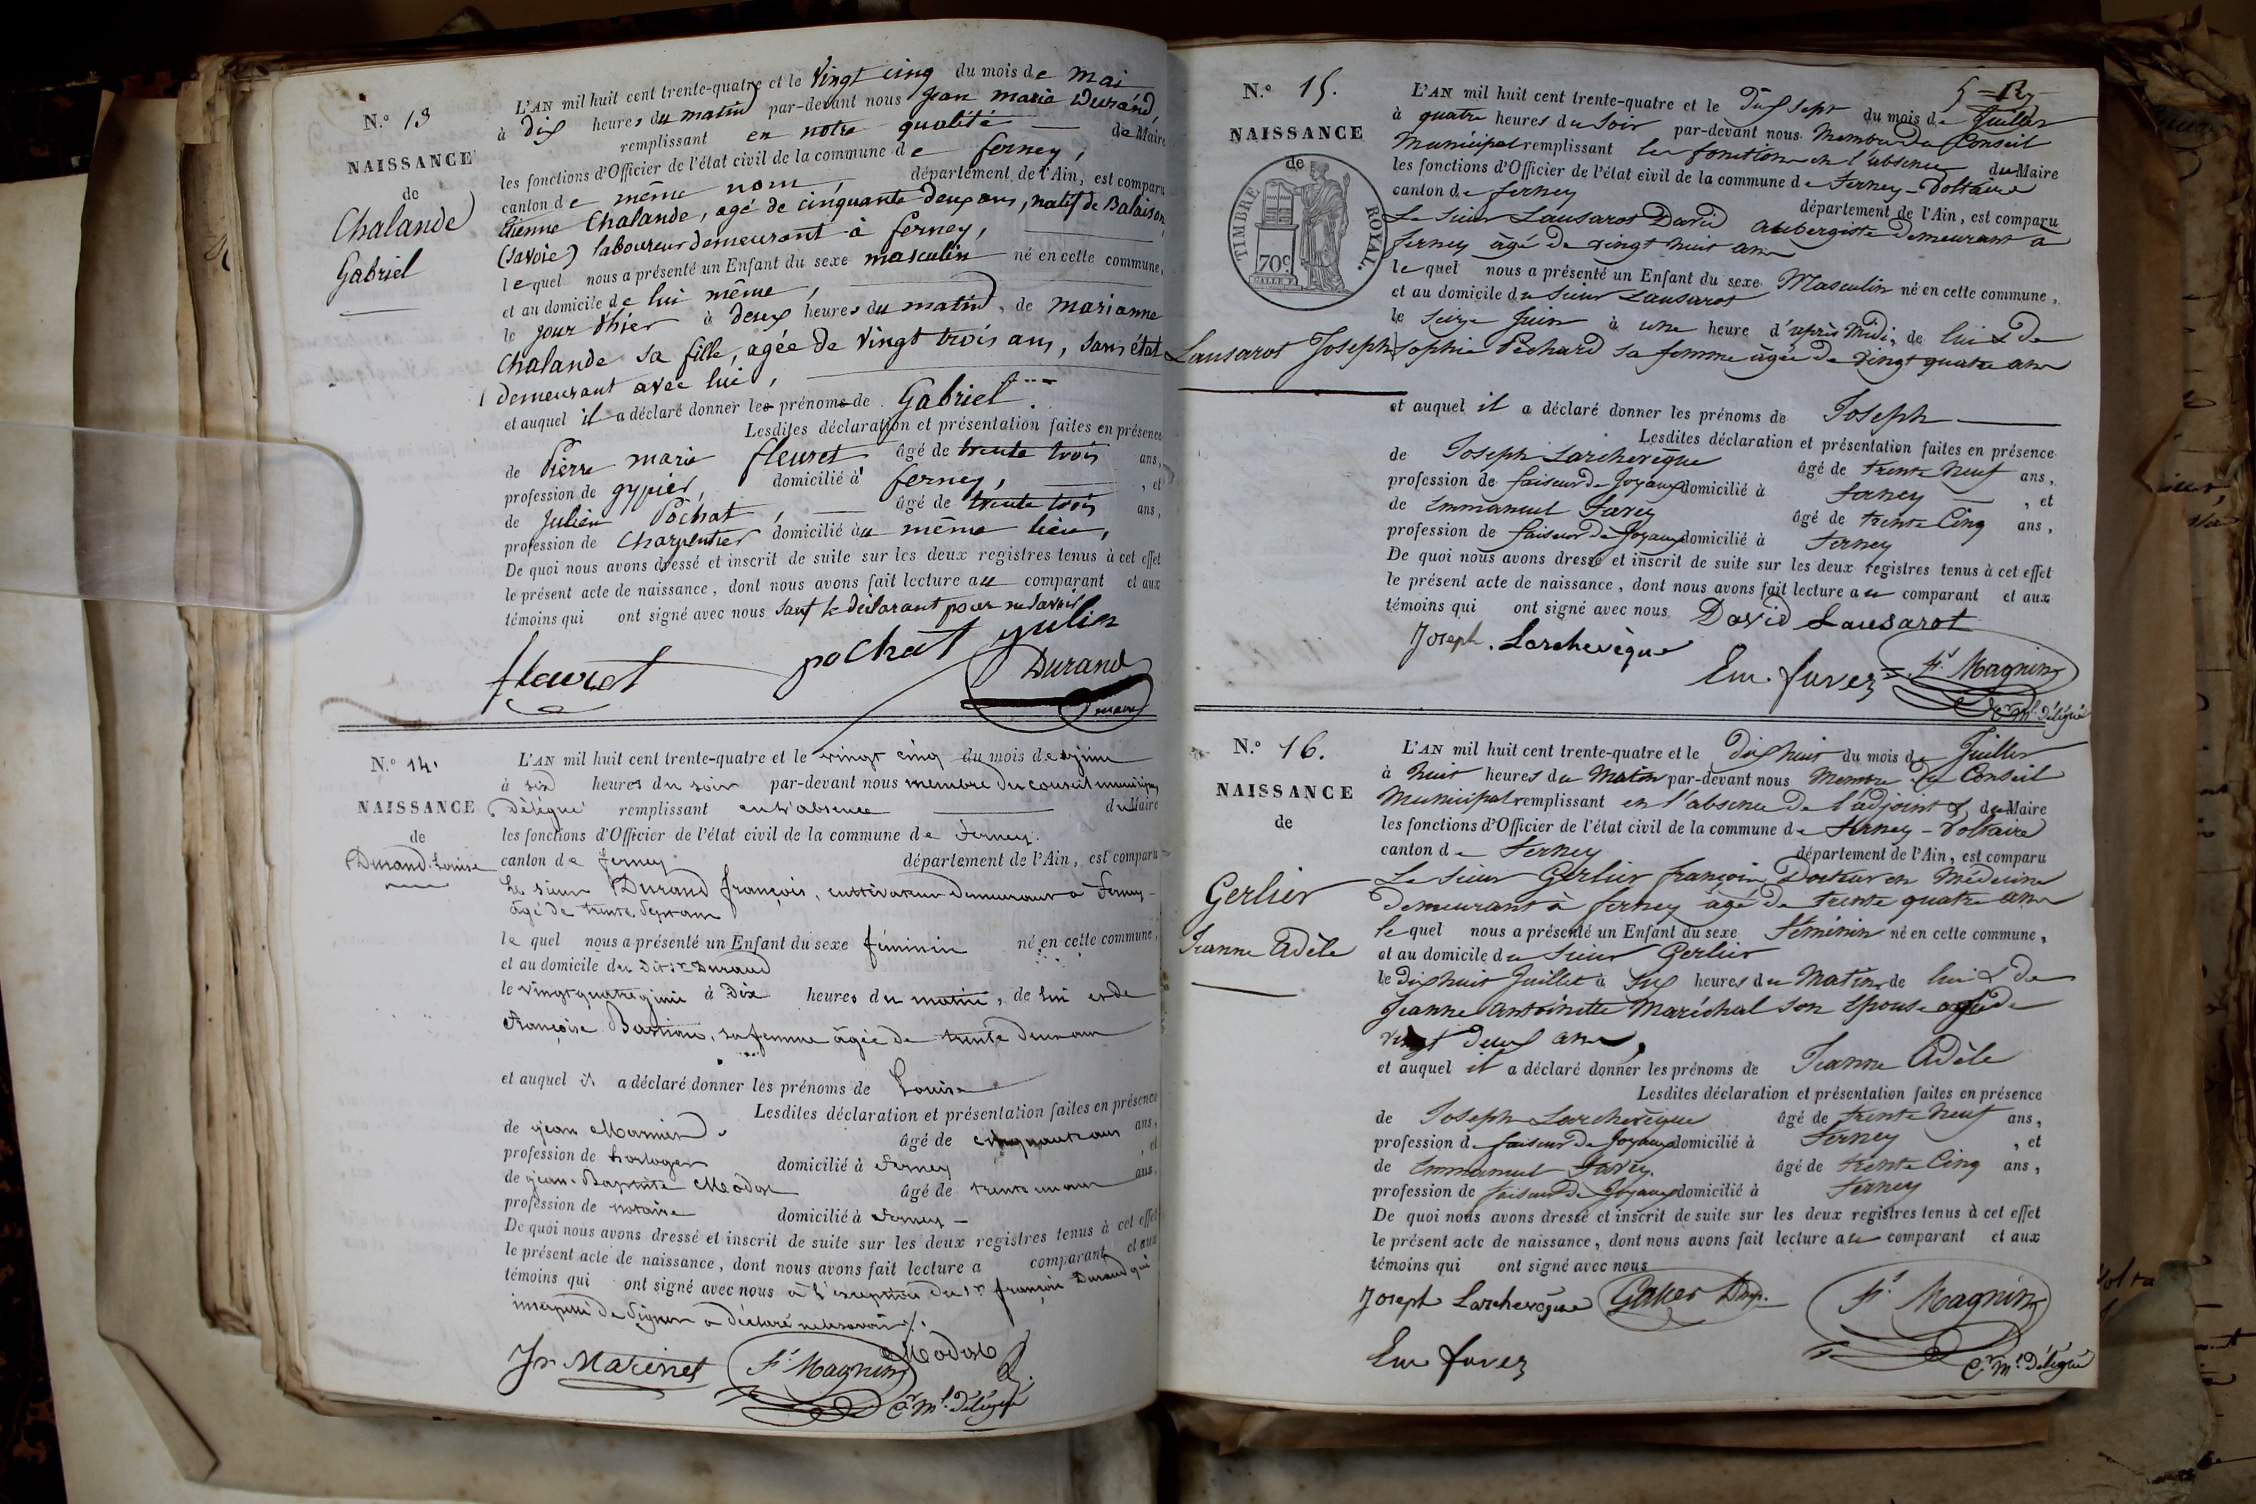 N.o 13
NAISSANCE
de
Chalande
Gabriel
L'AN mil huit cent trente-quatre et le Vingt cinq du mois de mai
à dix heures du matin par-devant nous Jean marie Durand,
remplissant en notre qualité de Maire
les fonctions d'Officier de l'état civil de la commune de ferney,
canton de même nom, département de l'Ain, est comparu
Etienne Chalande, agé de cinquante deux ans, natif de Balaison
(Savoie) laboureur demeurant à ferney,
lequel nous a présenté un Enfant du sexe masculin né en cette commune,
et au domicile de lui même,
le jour d'hier à deux heures du matin, de marianne
Chalande sa fille, agée de Vingt trois ans, sans état
demeurant avec lui,
et auquel il a déclaré donner les prénoms de Gabriel
Lesdites déclaration et présentation faites en présence
de Pierre marie fleuret âgé de trente trois ans,
profession de gypier, domicilié à ferney, , et
de Julien Pochat, âgé de trente trois ans,
profession de Charpentier domicilié au même lieu,
De quoi nous avons dressé et inscrit de suite sur les deux registres tenus à cet effet
le présent acte de naissance, dont nous avons fait lecture au comparant et aux
témoins qui ont signé avec nous sauf le déclarant pour ne savoir
fleuret pochat julien
Durand
maire
N.o 14.
NAISSANCE
de
Durand Louise
L'AN mil huit cent trente-quatre et le vingt cinq du mois de juin
à six heures du soir par-devant nous membre du conseil municipal
Délégué remplissant en l'absence du Maire
les fonctions d'Officier de l'état civil de la commune de Ferney.
canton de ferney département de l'Ain, est comparu
Le sieur Durand françois, cultivateur demeurant à Ferney
âgé de trente sept ans
lequel nous a présenté un Enfant du sexe féminin né en cette commune,
et au domicile du dit sr Durand
le vingt quatre juin à Dix heures du matin, de lui et de
françoise Bastian, sa femme âgée de trente deux ans
et auquel il a déclaré donner les prénoms de Louise
Lesdites déclaration et présentation faites en présence
de jean âgé de cinquante ans ans,
profession de horloger domicilié à Ferney , et
de jean Baptiste Modas âgé de trente un ans ans,
profession de notaire domicilié à Ferney
De quoi nous avons dressé et inscrit de suite sur les deux registres tenus à cet effet
le présent acte de naissance, dont nous avons fait lecture a comparant et aux
témoins qui ont signé avec nous à l'exception du sr françois Durand qui
de signer a déclaré ne le savoir
Fs Magnin
Cr ml Délégué
N.o 15.
NAISSANCE
de
TIMBRE ROYAL.
70c
Lausarot Joseph
L'AN mil huit cent trente-quatre et le Dix sept du mois de Juillet
à quatre heures du Soir par-devant nous Membre du Conseil
Municipal remplissant les fonctions en l'absence du Maire
les fonctions d'Officier de l'état civil de la commune de Ferney-Voltaire
canton de ferney département de l'Ain, est comparu
Le Sieur Lausarot David aubergiste demeurant à
ferney âgé de vingt huit ans
lequel nous a présenté un Enfant du sexe Masculin né en cette commune,
et au domicile du Sieur Lausarot
le Seize Juin à une heure d'après Midi, de lui & de
Sophie Pechard sa femme âgée de vingt quatre ans
et auquel il a déclaré donner les prénoms de Joseph
Lesdites déclaration et présentation faites en présence
de Joseph Larchevêque âgé de trente Neuf ans,
profession de faiseur de Joyaux domicilié à Ferney , et
de Emmanuel Favez âgé de trente Cinq ans,
profession de faiseur de Joyaux domicilié à Ferney
De quoi nous avons dressé et inscrit de suite sur les deux registres tenus à cet effet
le présent acte de naissance, dont nous avons fait lecture au comparant et aux
témoins qui ont signé avec nous David Lausarot
Joseph Larchevêque
Em favez Fs Magnin
Cr ml Délégué
N.o 16.
NAISSANCE
de
Gerlier
Jeanne Adèle
L'AN mil huit cent trente-quatre et le Dix huit du mois de Juillet
à huit heures du Matin par-devant nous Membre du Conseil
Municipal remplissant en l'absence de l'adjoint & du Maire
les fonctions d'Officier de l'état civil de la commune de Ferney-Voltaire
canton de Ferney département de l'Ain, est comparu
Le Sieur Gerlier françois Docteur en Médecine
demeurant à ferney âgé de trente quatre ans
lequel nous a présenté un Enfant du sexe féminin né en cette commune,
et au domicile du Sieur Gerlier
le dix huit Juillet à Six heures du Matin, de lui & de
Jeanne Antoinette Maréchal son épouse agée de
vingt deux ans,
et auquel il a déclaré donner les prénoms de Jeanne Adèle
Lesdites déclaration et présentation faites en présence
de Joseph Larchevêque âgé de trente Neuf ans,
profession de faiseur de Joyaux domicilié à Ferney , et
de Emmanuel Favez. âgé de trente Cinq ans,
profession de faiseur de Joyaux domicilié à Ferney
De quoi nous avons dressé et inscrit de suite sur les deux registres tenus à cet effet
le présent acte de naissance, dont nous avons fait lecture au comparant et aux
témoins qui ont signé avec nous
Joseph Larchevêque Fs Magnin
Em favez Cr ml Délégué